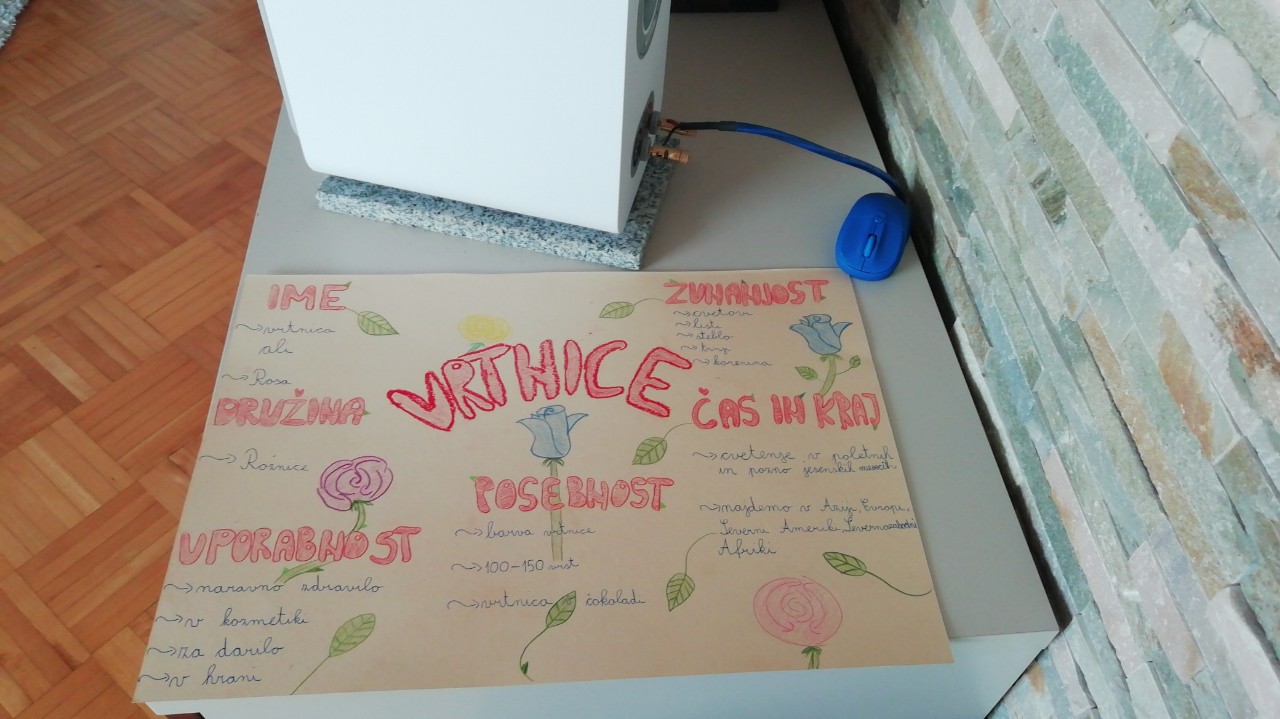 IME
~vrtnica
ali
~Rosa
DRUŽINA
~Rožnice
UPORABNOST
~naravno zdravilo
~v kozmetiki
~za darilo
~v hrani
VRTNICE
POSEBNOST
~barva vrtnice
~100-150 vrst
~vrtnica čokolada
ZUNANJOST
~cvetovi
~listi
~steblo
~trnji
~korenina
ČAS IN KRAJ
~cvetenje v poletnih
in pozno jesenskih mesecih
~najdemo v Aziji, Evropi,
Severni Ameriki, Severnozahodni
Afriki